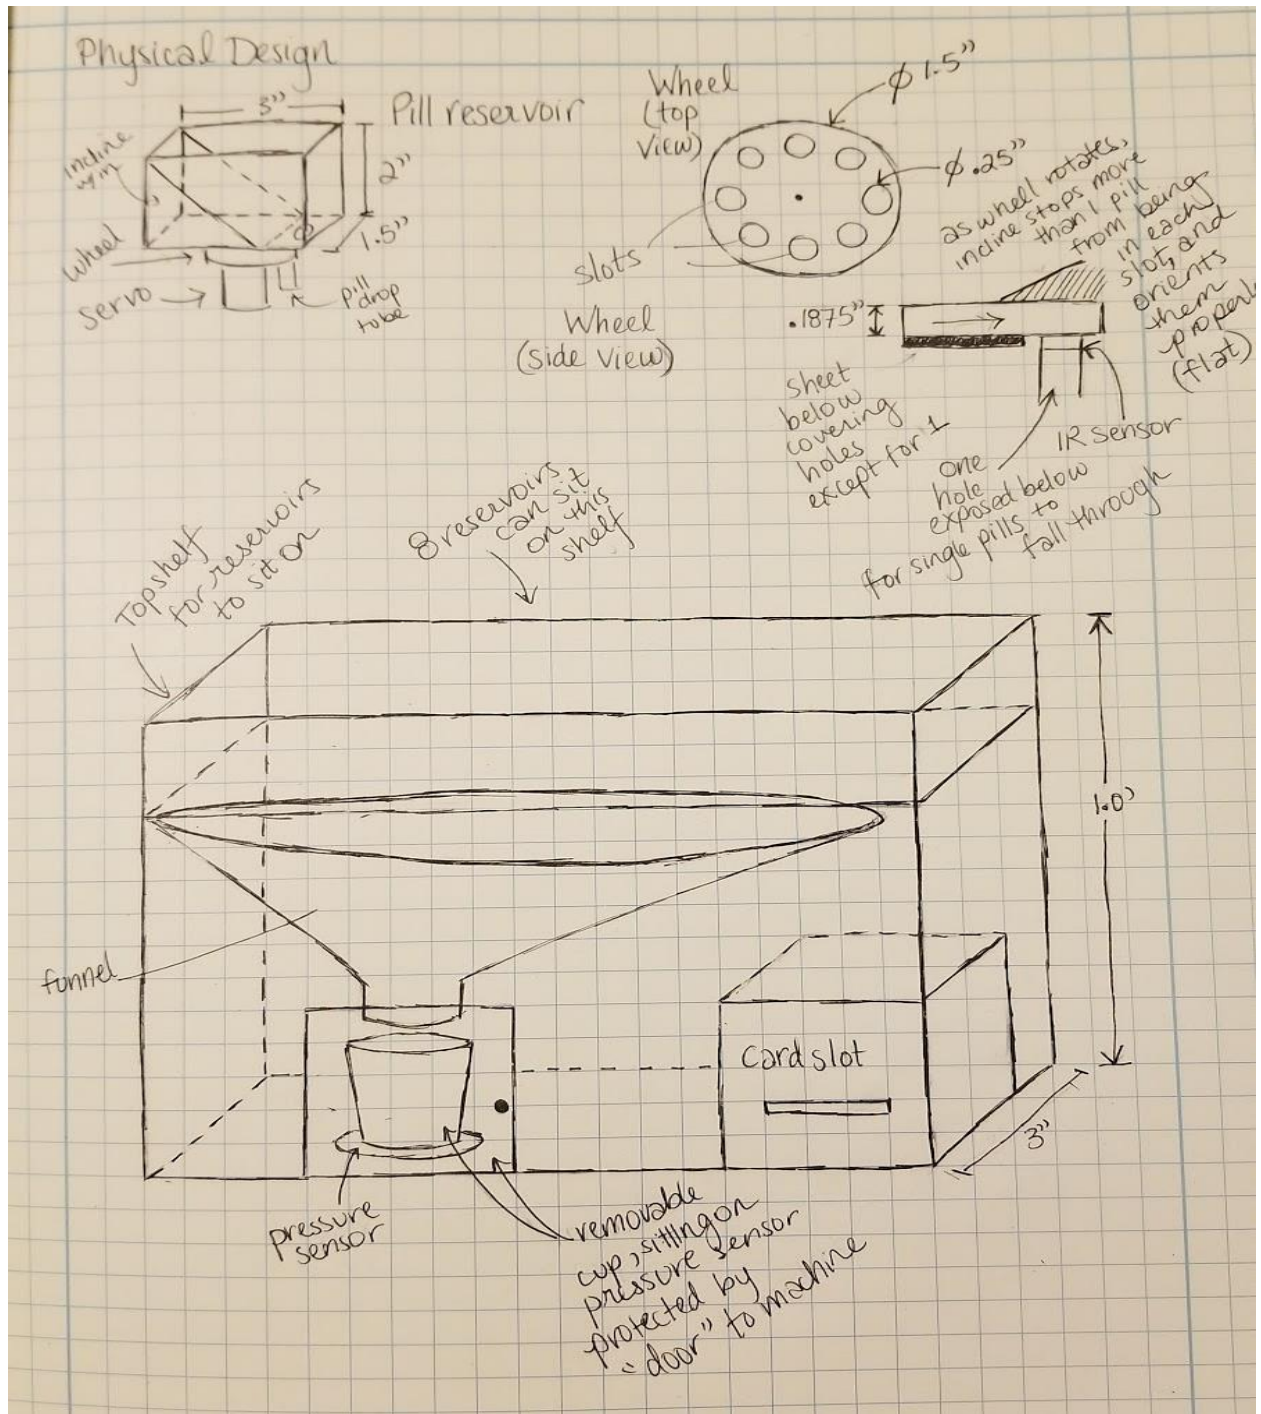 Physical Design
3"
Pill reservoir
incline
2"
1.5"
wheel
servo
pill
drop
tube
Wheel
(top
view)
ϕ 1.5"
ϕ .25"
slots
Wheel
(side view)
.1875"
as wheel rotates,
incline stops more
than 1 pill
from being
in each
slot, and
orients
them
properly
(flat)
sheet
below
covering
holes
except for 1
one
hole
exposed below
for single pills to
fall through
IR sensor
Top shelf
for reservoirs
to sit on
8 reservoirs
can sit
on this
shelf
funnel
card slot
3"
pressure
sensor
removable
cup, sitting on
pressure sensor
protected by
"door" to machine